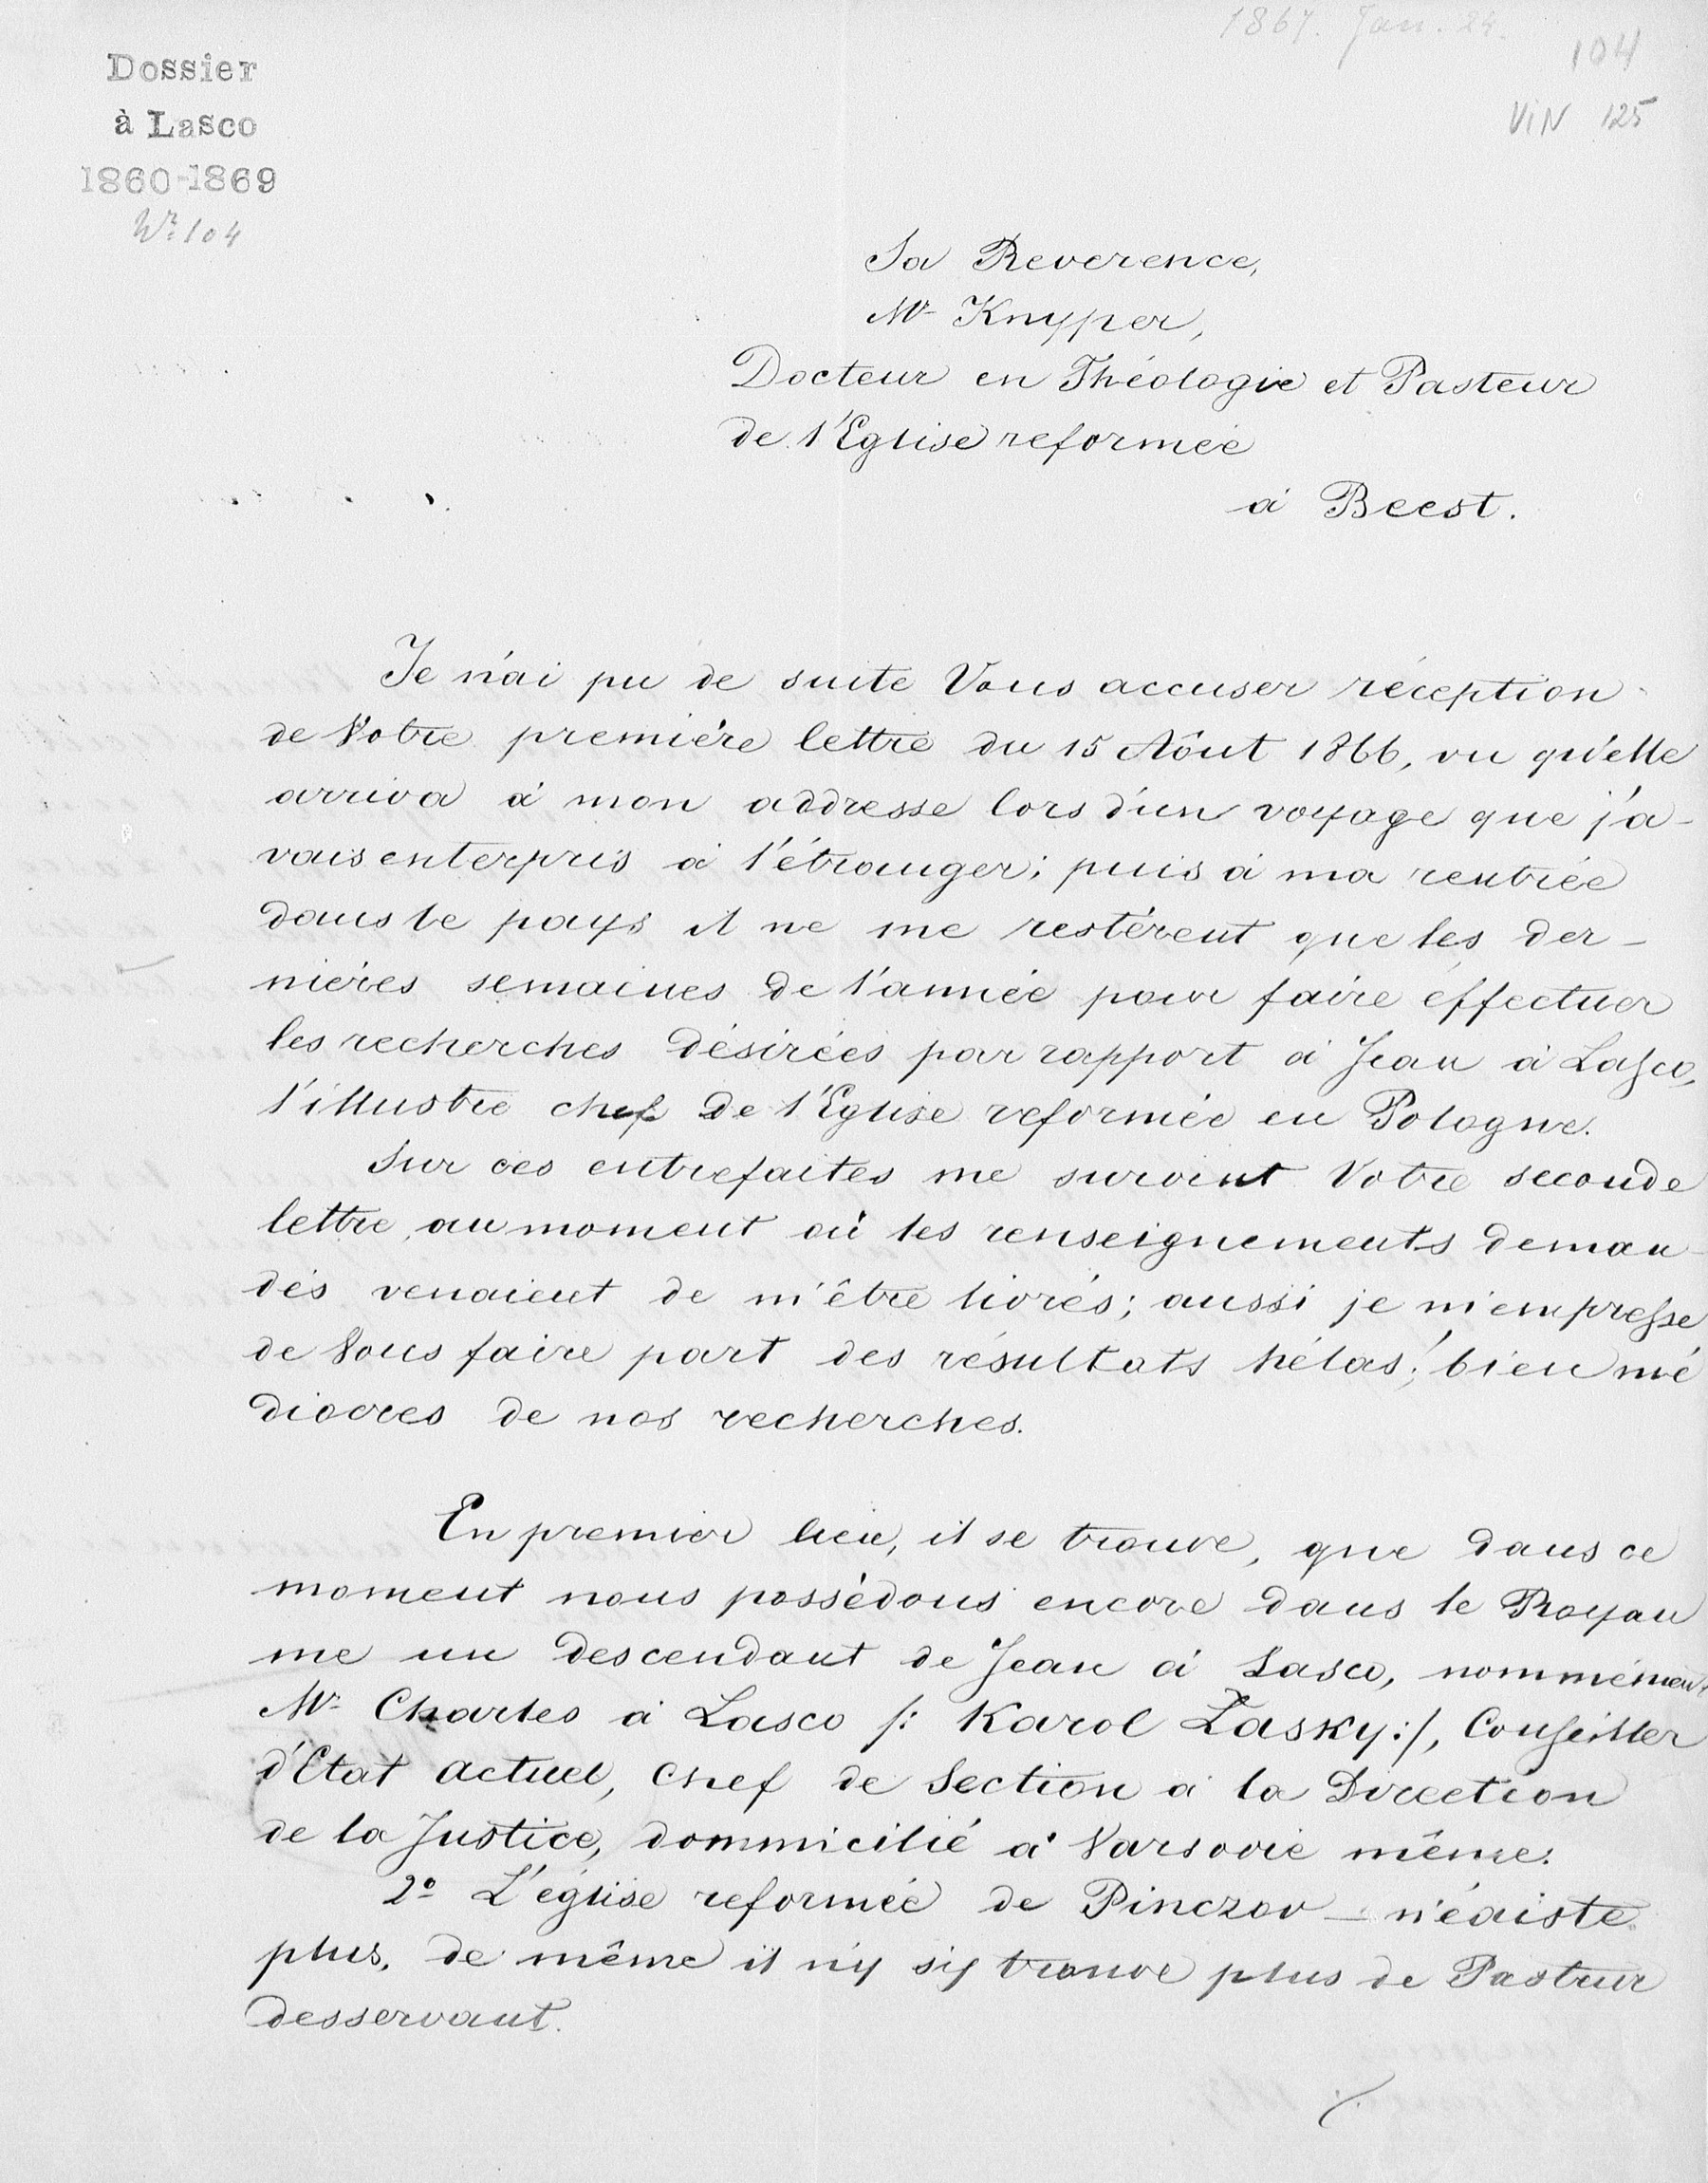 1867. Jan. 24.
104
VIN 125
Dossier
à Lasco
1860-1869
Nr. 104
Sa Reverence,
Mr Knyper,
Docteur en Théologie et Pasteur
de l'Eglise reformée
à Beest.
Je n'ai pu de suite Vous accuser réception
de Votre première lettre du 15 Aôut 1866, vu qu'elle
arriva à mon addresse lors d'un voyage que j'a-
vais enterpris à l'étranger; puis à ma rentrée
dans le pays il ne me restèrent que les der-
nières semaines de l'année pour faire éffectuer
les recherches désirées par rapport à Jean à Lasco,
l'illustre chef de l'Eglise reformée en Pologne.
Sur ces entrefaites me survint Votre seconde
lettre, au moment où les renseignements deman-
dés venaient de m'être livrés; aussi je m'empresse
de Vous faire part des résultats hélas! bien mé
diocres de nos recherches.
En premier lieu, il se trouve, que dans ce
moment nous possèdons encore dans le Royau
me un descendant de Jean à Lasco, nommément
Mr. Charles à Lasco /: Karol Łasky:/, Conseiller
d'Etat actuel, Chef de Section à la Direction
de la Justice, dommicilié à Varsovie même.
2º L'église reformée de Pinczov – n'éxiste
plus, de même il n'y s'y trouve plus de Pasteur
desservant.
./.